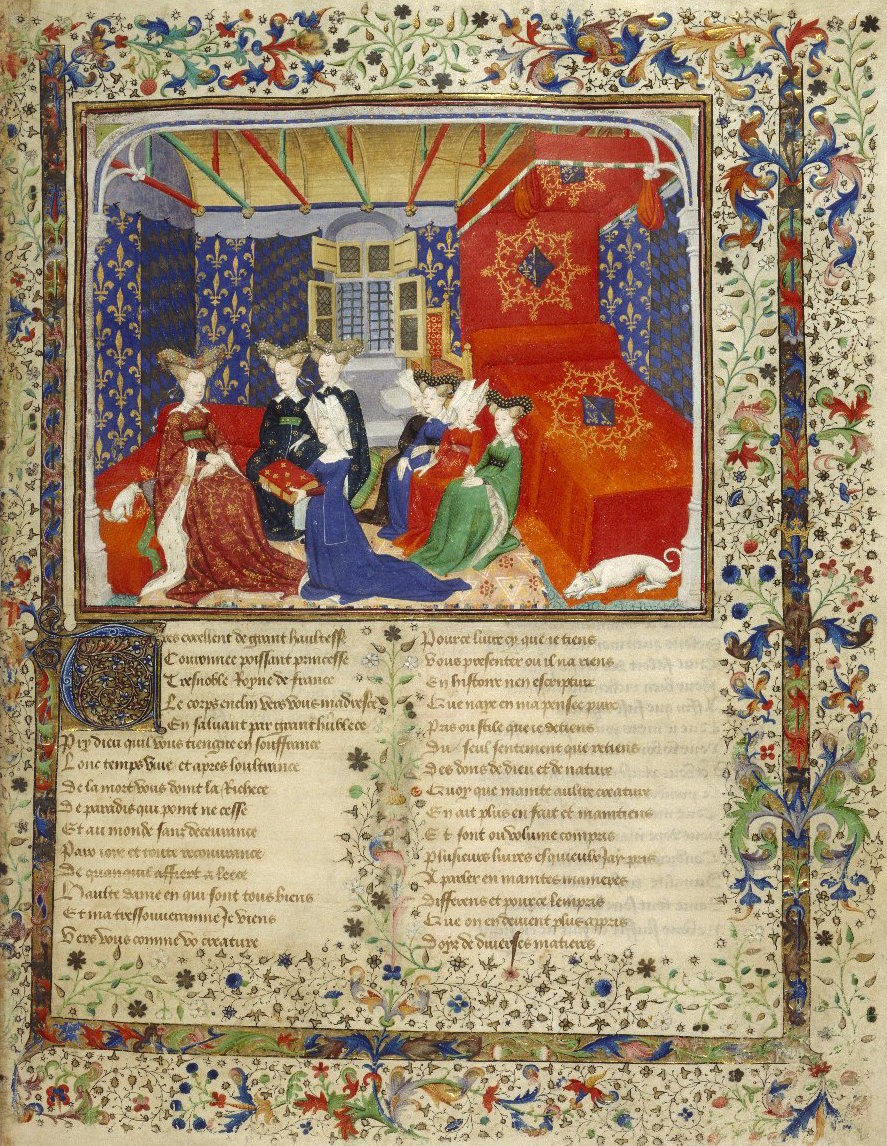 Tres excellent de grant haultesse
Couronnee poissant princesse
Tresnoble Royne de france
Le corps enclin vers vous madresce
En saluant par grant humblece
Pry dieu quil vous tiengne en souffrance
Lonc temps vive et apres loultrance
De la mort vous doint la Richece
De paradis qui point ne cesse
Et au monde sans decevance
Paix ioie et toute recouvrance
De quanque affiert a leece
Haulte dame en qui sont tous biens
Et ma tressouverainne Je viens
Vers vous comme vo creature
Pour ce livre cy que ie tiens
Vous presenter ou il na riens
En histoire nen escripture
Que naye en ma pensee pure
Pris ou stile que ie detiens
Du seul sentement que retiens
Des dons de dieu et de nature
Quoy que mainte aultre creature
En ait plus en fait et maintiens
Et sont ou volume compris
Plusieurs livres esquieulx Jay pris
A parler en maintes manieres
Differens et pour ce lempris
Que on en devient plus apris
Doyr de diverses matieres